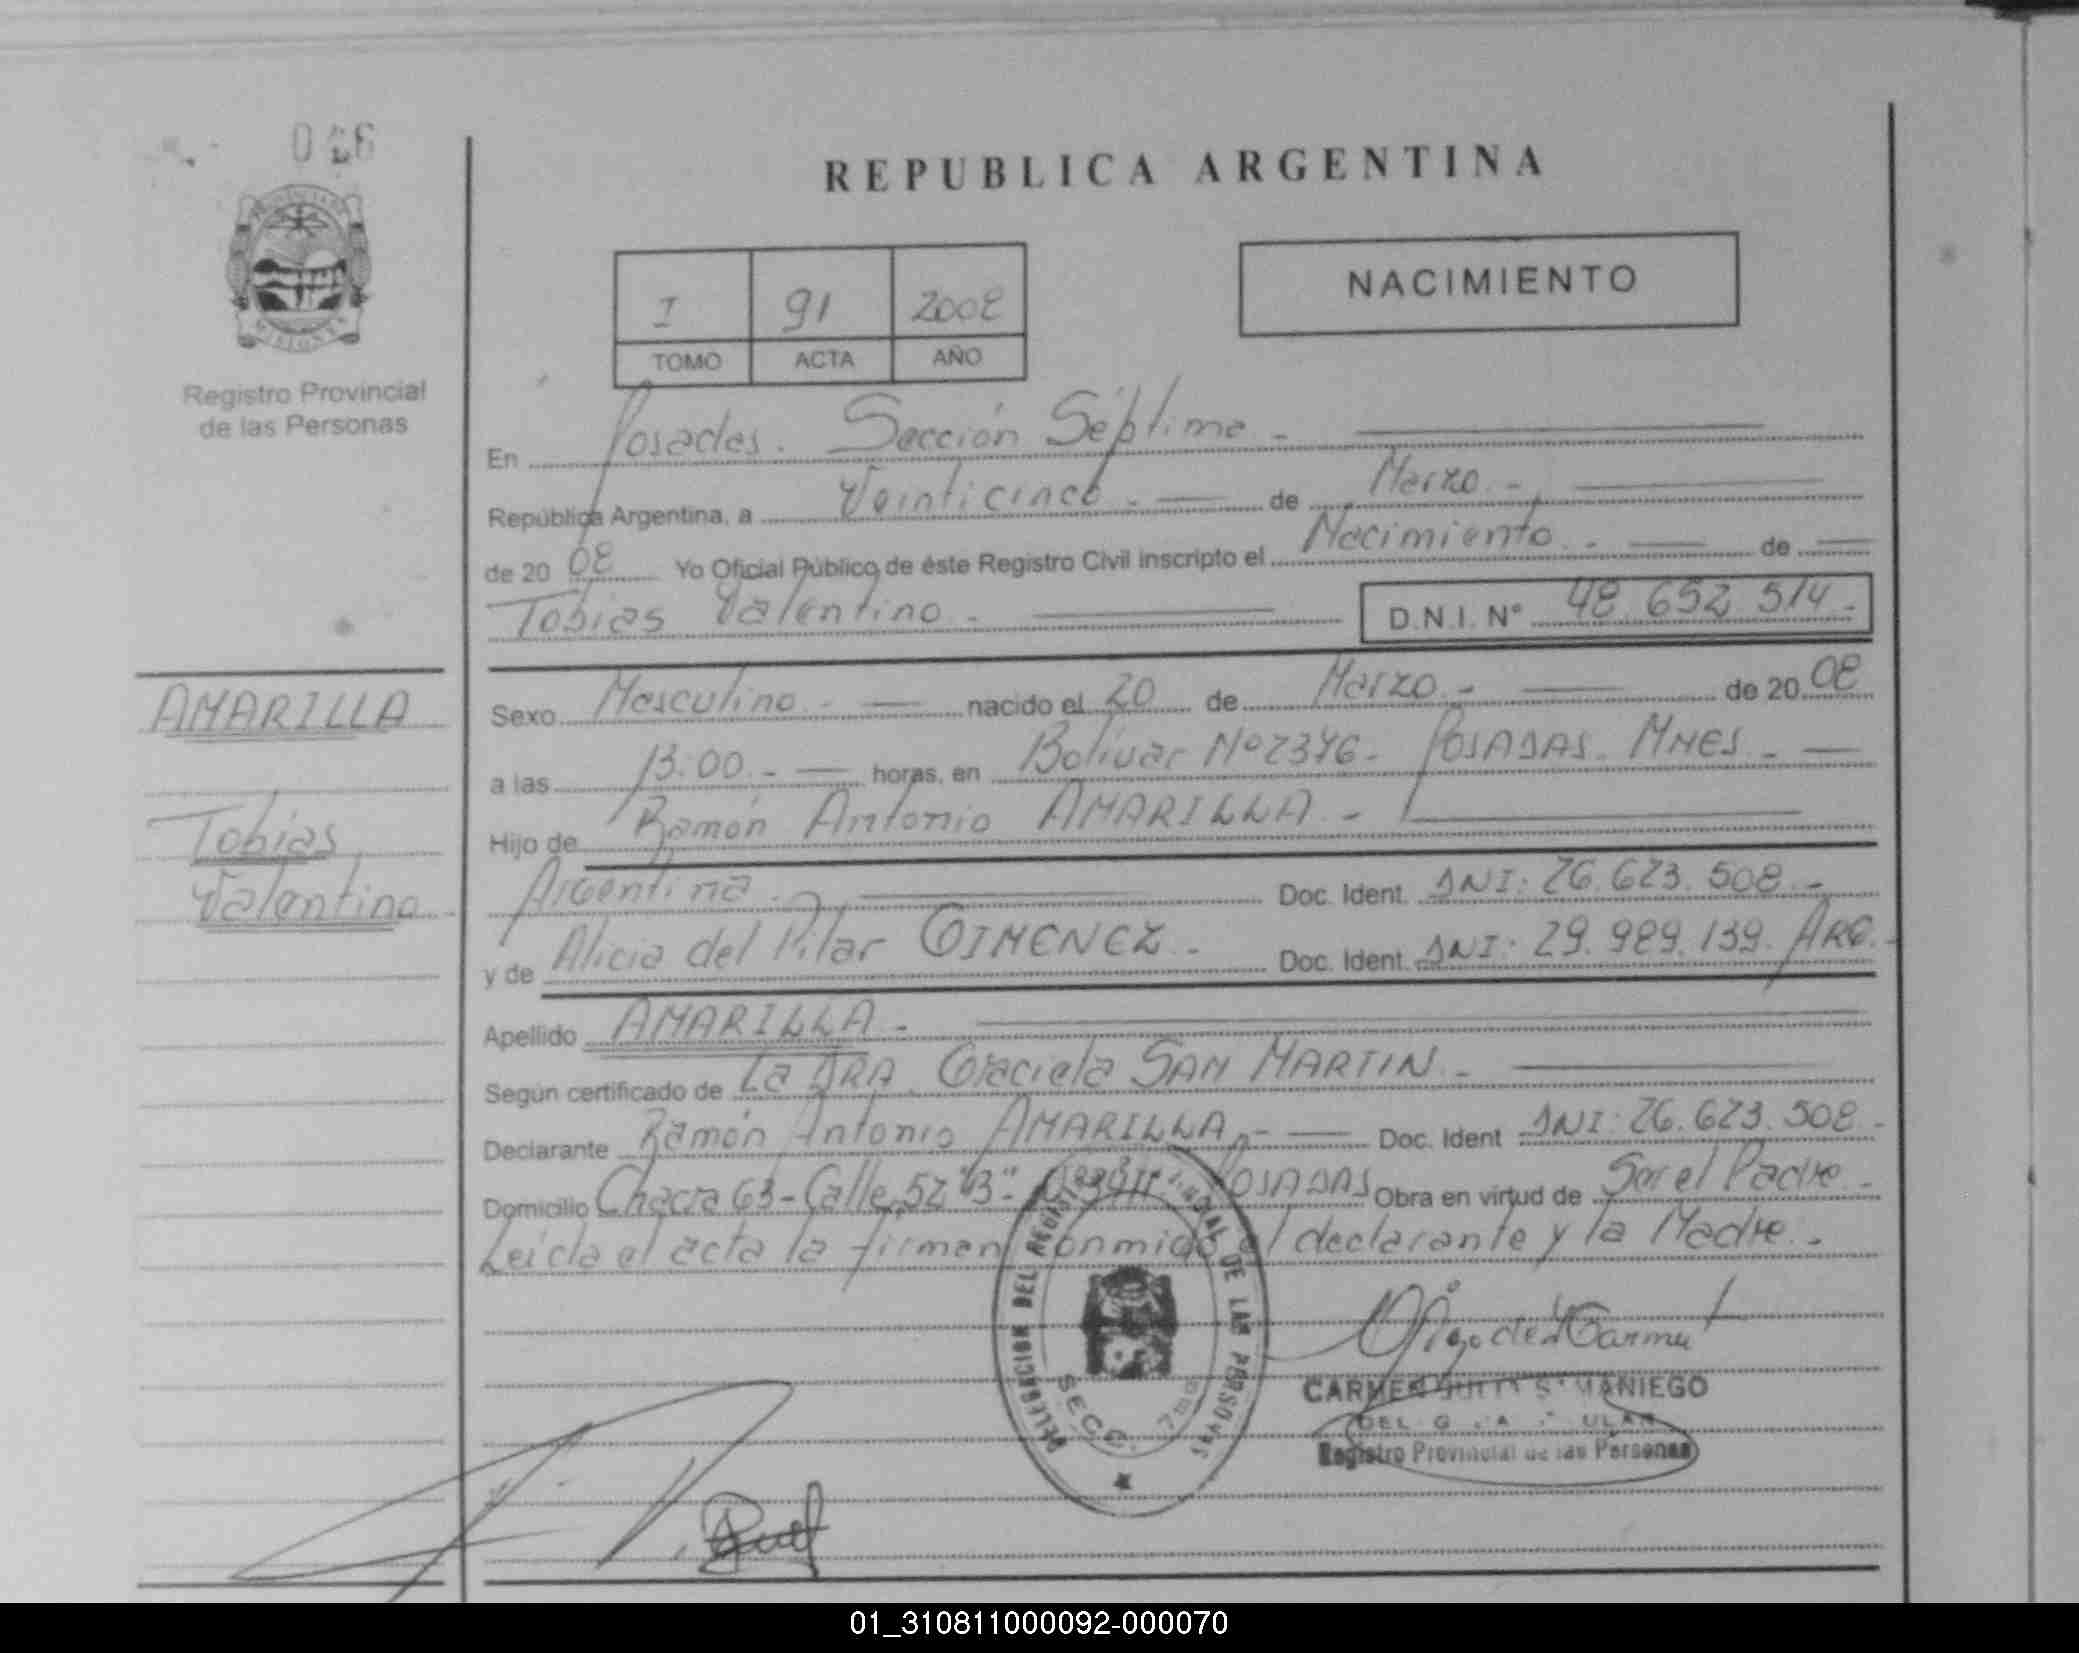 REPUBLICA ARGENTINA
Registro Provincial
de las Personas
I 91 2008
TOMO ACTA AÑO
NACIMIENTO
En Posadas. Sección Séptima -
República Argentina, a Veinticinco - de Marzo. -
de 20 08 Yo Oficial Público de éste Registro Civil inscripto el Nacimiento. - de
Tobias Valentino. -
D.N.I. N° 48.652.514.-
AMARILLA
Tobias
Valentino
Sexo Masculino. - nacido el 20 de Marzo. - de 20 08
a las 13:00.- horas, en Bolivar Nº 2376- POSADAS. MNES. -
Hijo de Ramón Antonio AMARILLA. -
Argentina. Doc. Ident. DNI: 26.623.508.-
y de Alicia del Pilar GIMENEZ. - Doc. Ident. DNI: 29.989.139. ARG.-
Apellido AMARILLA. -
Según certificado de La DRA. Graciela SAN MARTIN. -
Declarante Ramón Antonio AMARILLA. - Doc. Ident DNI: 26.623.508.-
Domicilio Chacra 63- Calle 52 "B"- POSADAS Obra en virtud de Ser el Padre. -
Leída el acta la firman conmigo el declarante y la Madre. -
DELEGACION DEL REGISTRO DE LAS PERSONAS
SECC. 7ma
CARMEN MANIEGO
Registro Provincial de las Personas
01_310811000092-000070